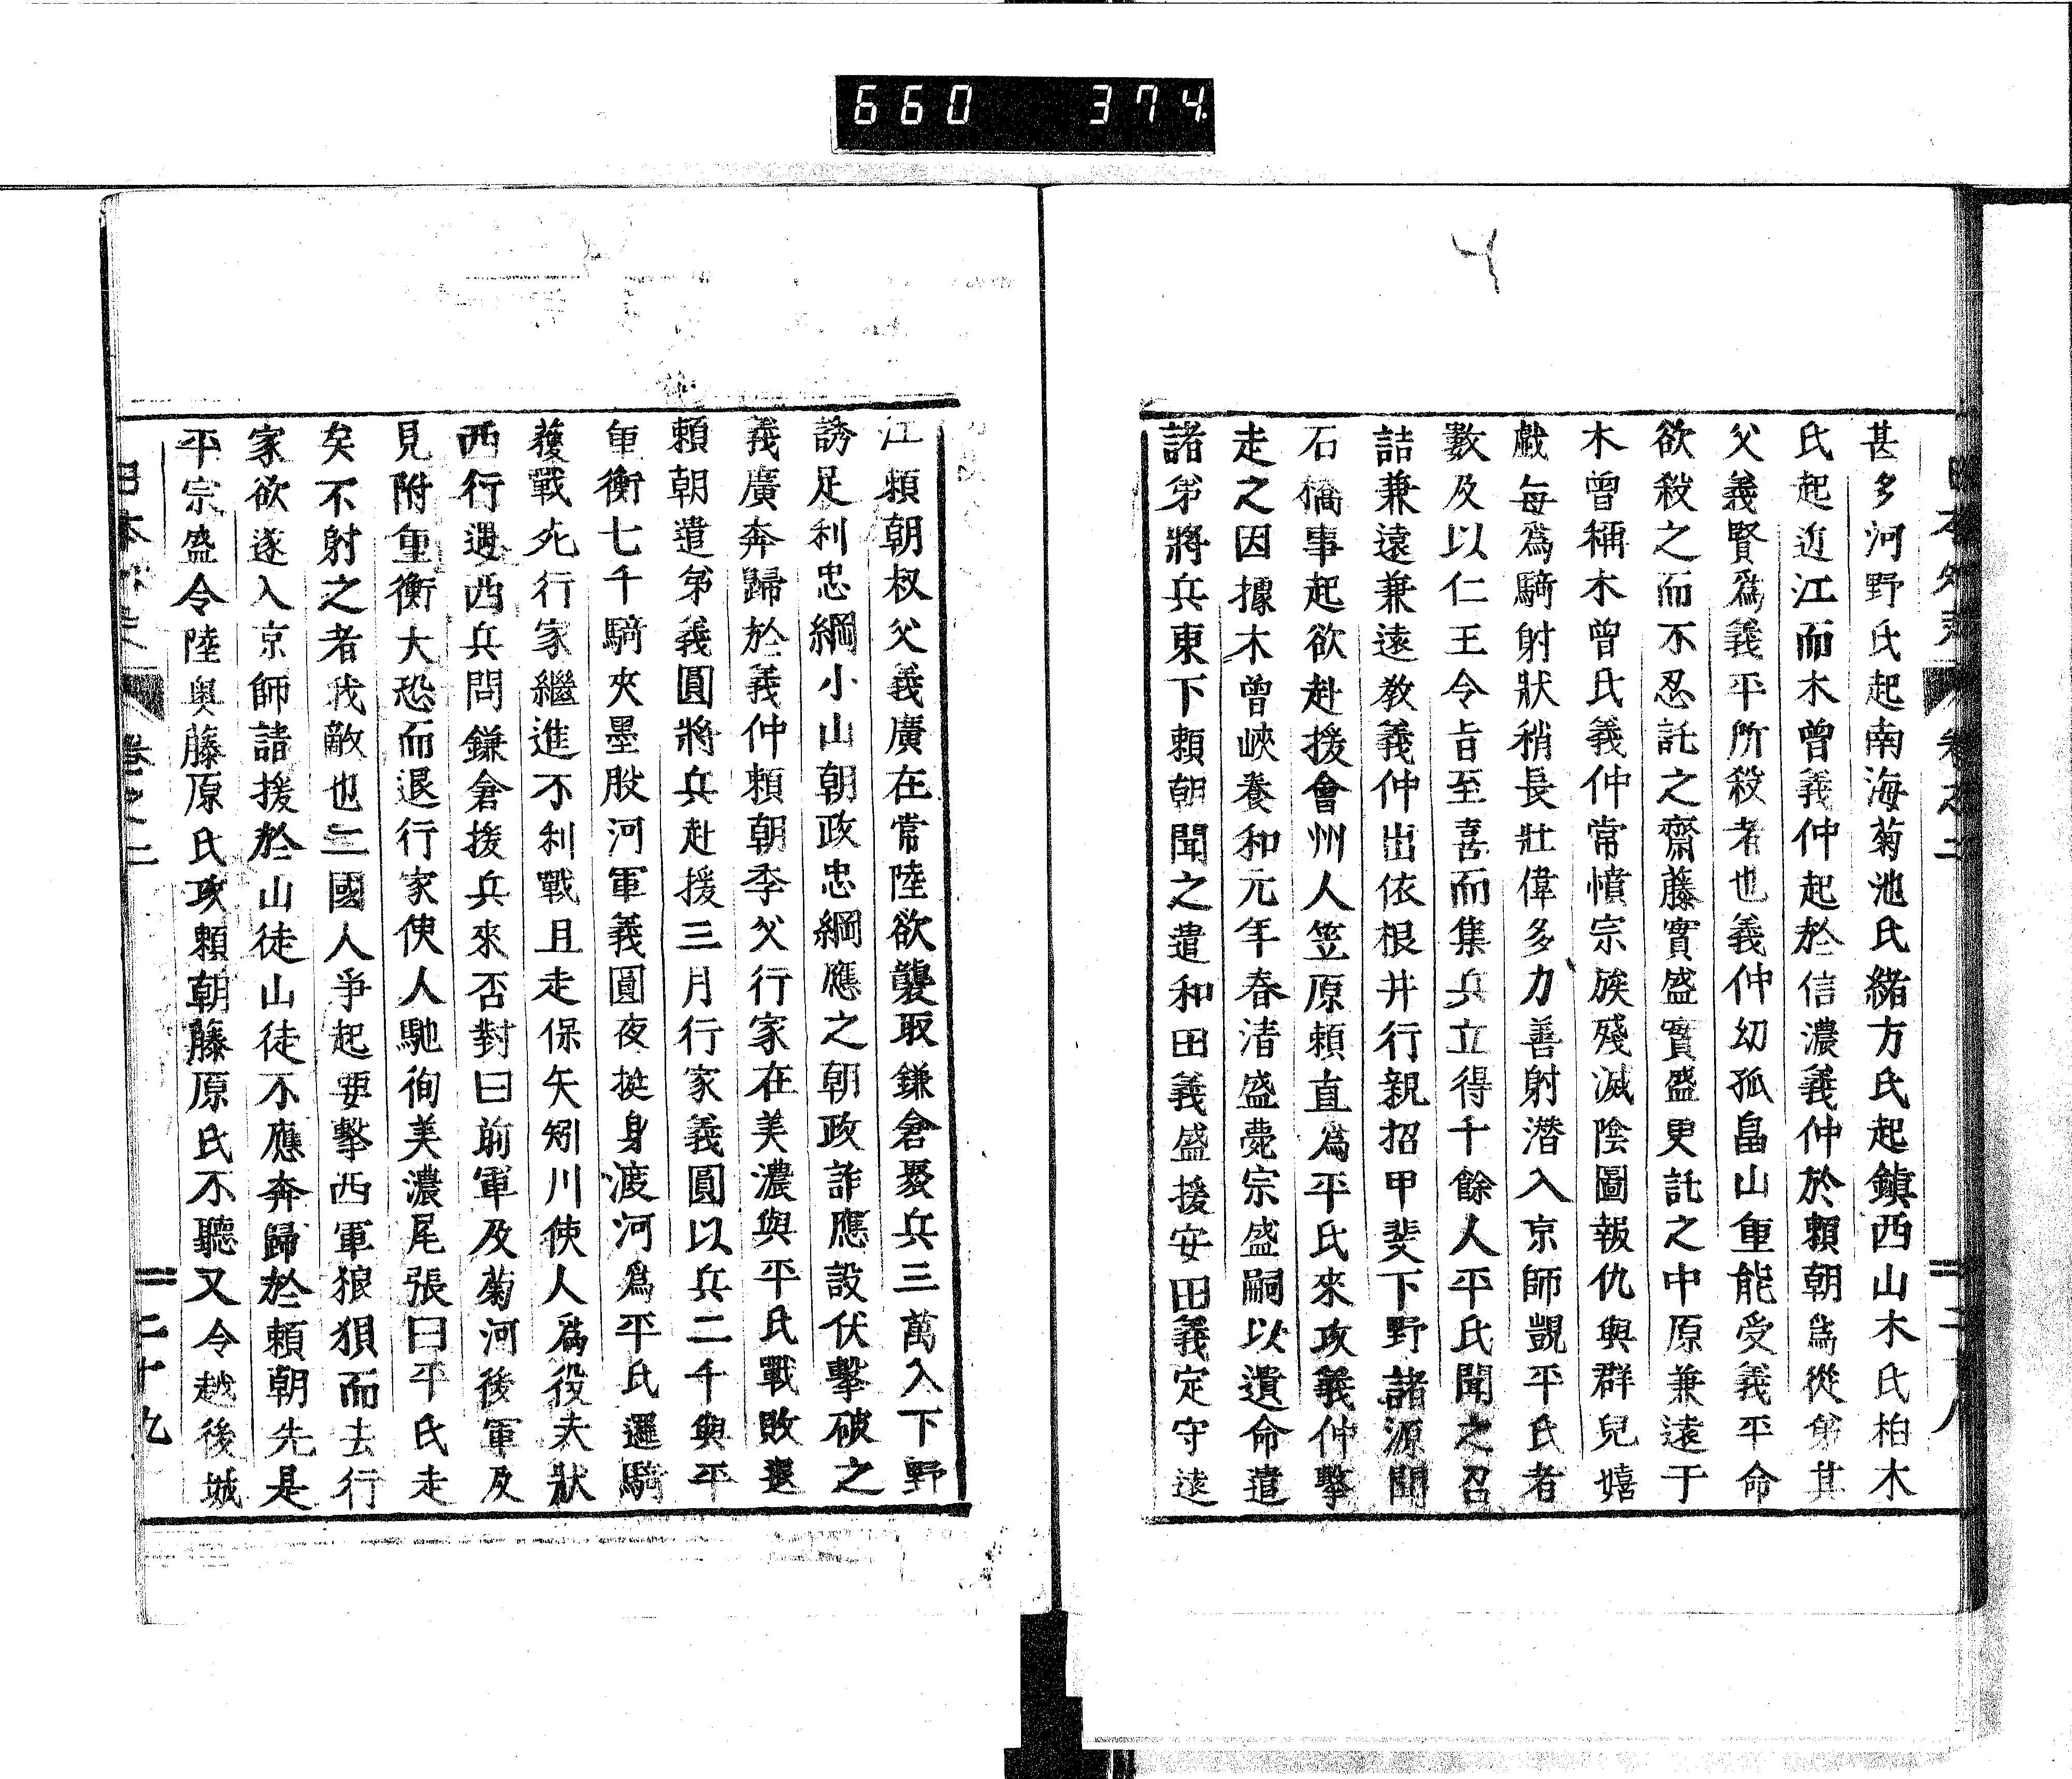 660 374
甚多河野氏起南海菊池氏緒方氏起鎮西山木氏柏木
氏起近江而木曾義仲起於信濃義仲於頼朝爲從弟其
父義賢爲義平所殺者也義仲幼孤畠山重能受義平命
欲殺之而不忍託之齋藤實盛實盛更託之中原兼遠于
木曾稱木曾氏義仲常憤宗族殘滅陰圖報仇與群兒嬉
戲每爲騎射狀稍長壯偉多力善射潜入京師覬平氏者
數及以仁王令旨至喜而集兵立得千餘人平氏聞之召
詰兼遠兼遠教義仲出依根井行親招甲斐下野諸源聞
石橋事起欲赴援會州人笠原頼直爲平氏來攻義仲擊
走之因據木曾峽養和元年春清盛薨宗盛嗣以遺命遣
諸弟將兵東下頼朝聞之遣和田義盛援安田義定守遠
江頼朝叔父義廣在常陸欲襲取鎌倉聚兵三萬入下野
誘足利忠綱小山朝政忠綱應之朝政詐應設伏擊破之
義廣奔歸於義仲頼朝季父行家在美濃與平氏戰敗還
頼朝遣弟義圓將兵赴援三月行家義圓以兵二千與平
重衡七千騎夾墨股河軍義圓夜挺身渡河爲平氏邏騎
獲戰死行家繼進不利戰且走保矢矧川使人爲役夫狀
西行遇西兵問鎌倉援兵來否對曰前軍及菊河後軍及
見附重衡大恐而退行家使人馳徇美濃尾張曰平氏走
矣不射之者我敵也二國人爭起要擊西軍狼狽而去行
家欲遂入京師請援於山徒山徒不應奔歸於頼朝先是
平宗盛令陸奥藤原氏攻頼朝藤原氏不聽又令越後城
日本 卷之二 二十九